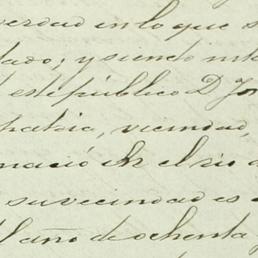 verdad en lo que s
dado; y siendo inte
este público D. Jo
patria, vecindad,
nació en el rio d
su vecindad es
el año de ochenta y